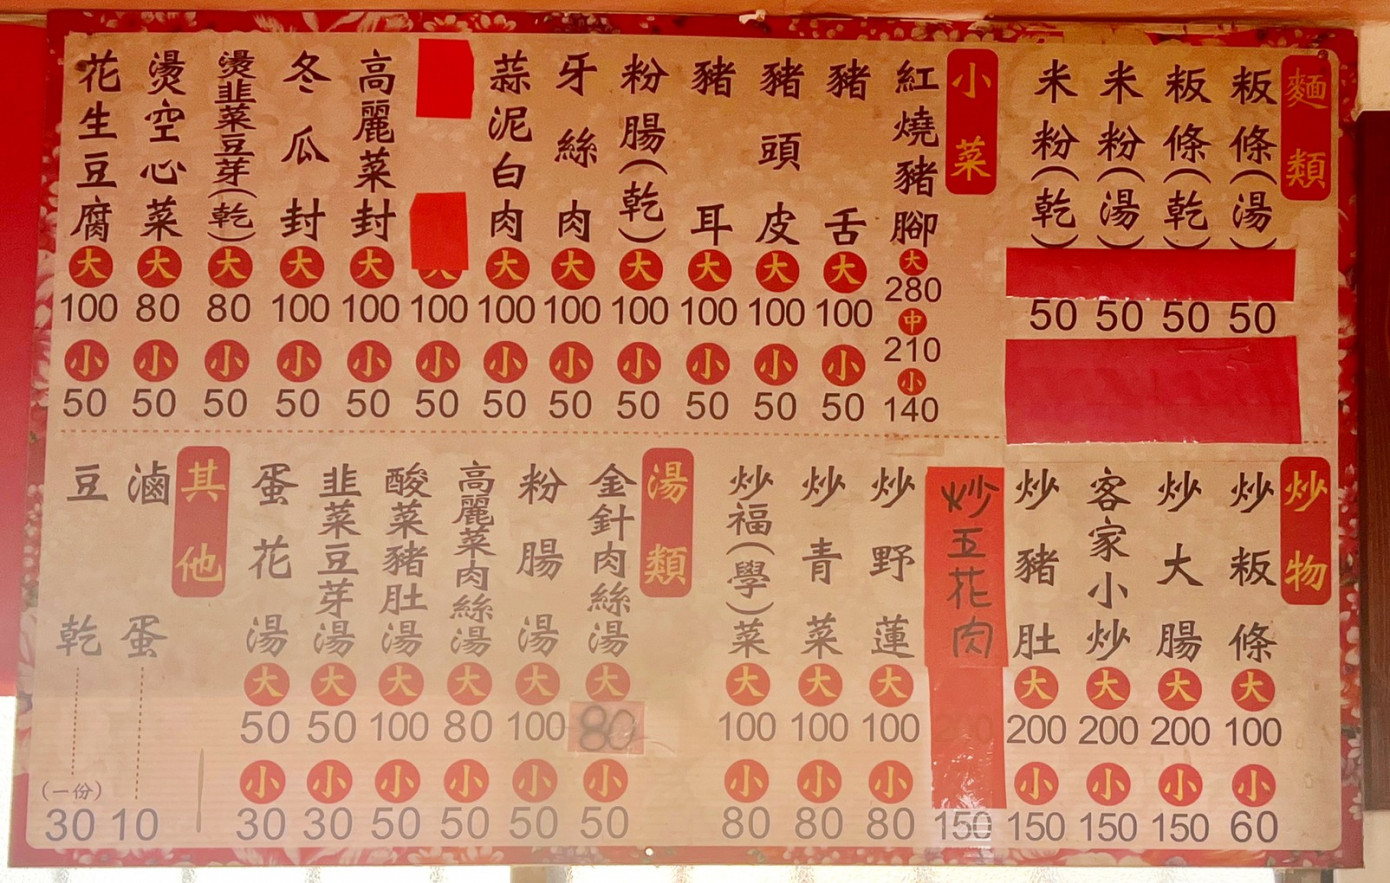 麵類
粄條(湯) 50
粄條(乾) 50
米粉(湯) 50
米粉(乾) 50
小菜
紅燒豬腳 大 280 中 210 小 140
豬舌 大 100 小 50
豬頭皮 大 100 小 50
豬耳 大 100 小 50
粉腸(乾) 大 100 小 50
牙絲肉 大 100 小 50
蒜泥白肉 大 100 小 50
大 100 小 50
高麗菜封 大 100 小 50
冬瓜封 大 100 小 50
燙韭菜豆芽(乾) 大 80 小 50
燙空心菜 大 80 小 50
花生豆腐 大 100 小 50
炒物
炒粄條 大 100 小 60
炒大腸 大 200 小 150
客家小炒 大 200 小 150
炒豬肚 大 200 小 150
炒五花肉 200 150
炒野蓮 大 100 小 80
炒青菜 大 100 小 80
炒福(學)菜 大 100 小 80
湯類
金針肉絲湯 大 80 小 50
粉腸湯 大 100 小 50
高麗菜肉絲湯 大 80 小 50
酸菜豬肚湯 大 100 小 50
韭菜豆芽湯 大 50 小 30
蛋花湯 大 50 小 30
其他
滷蛋 10
豆乾 (一份) 30